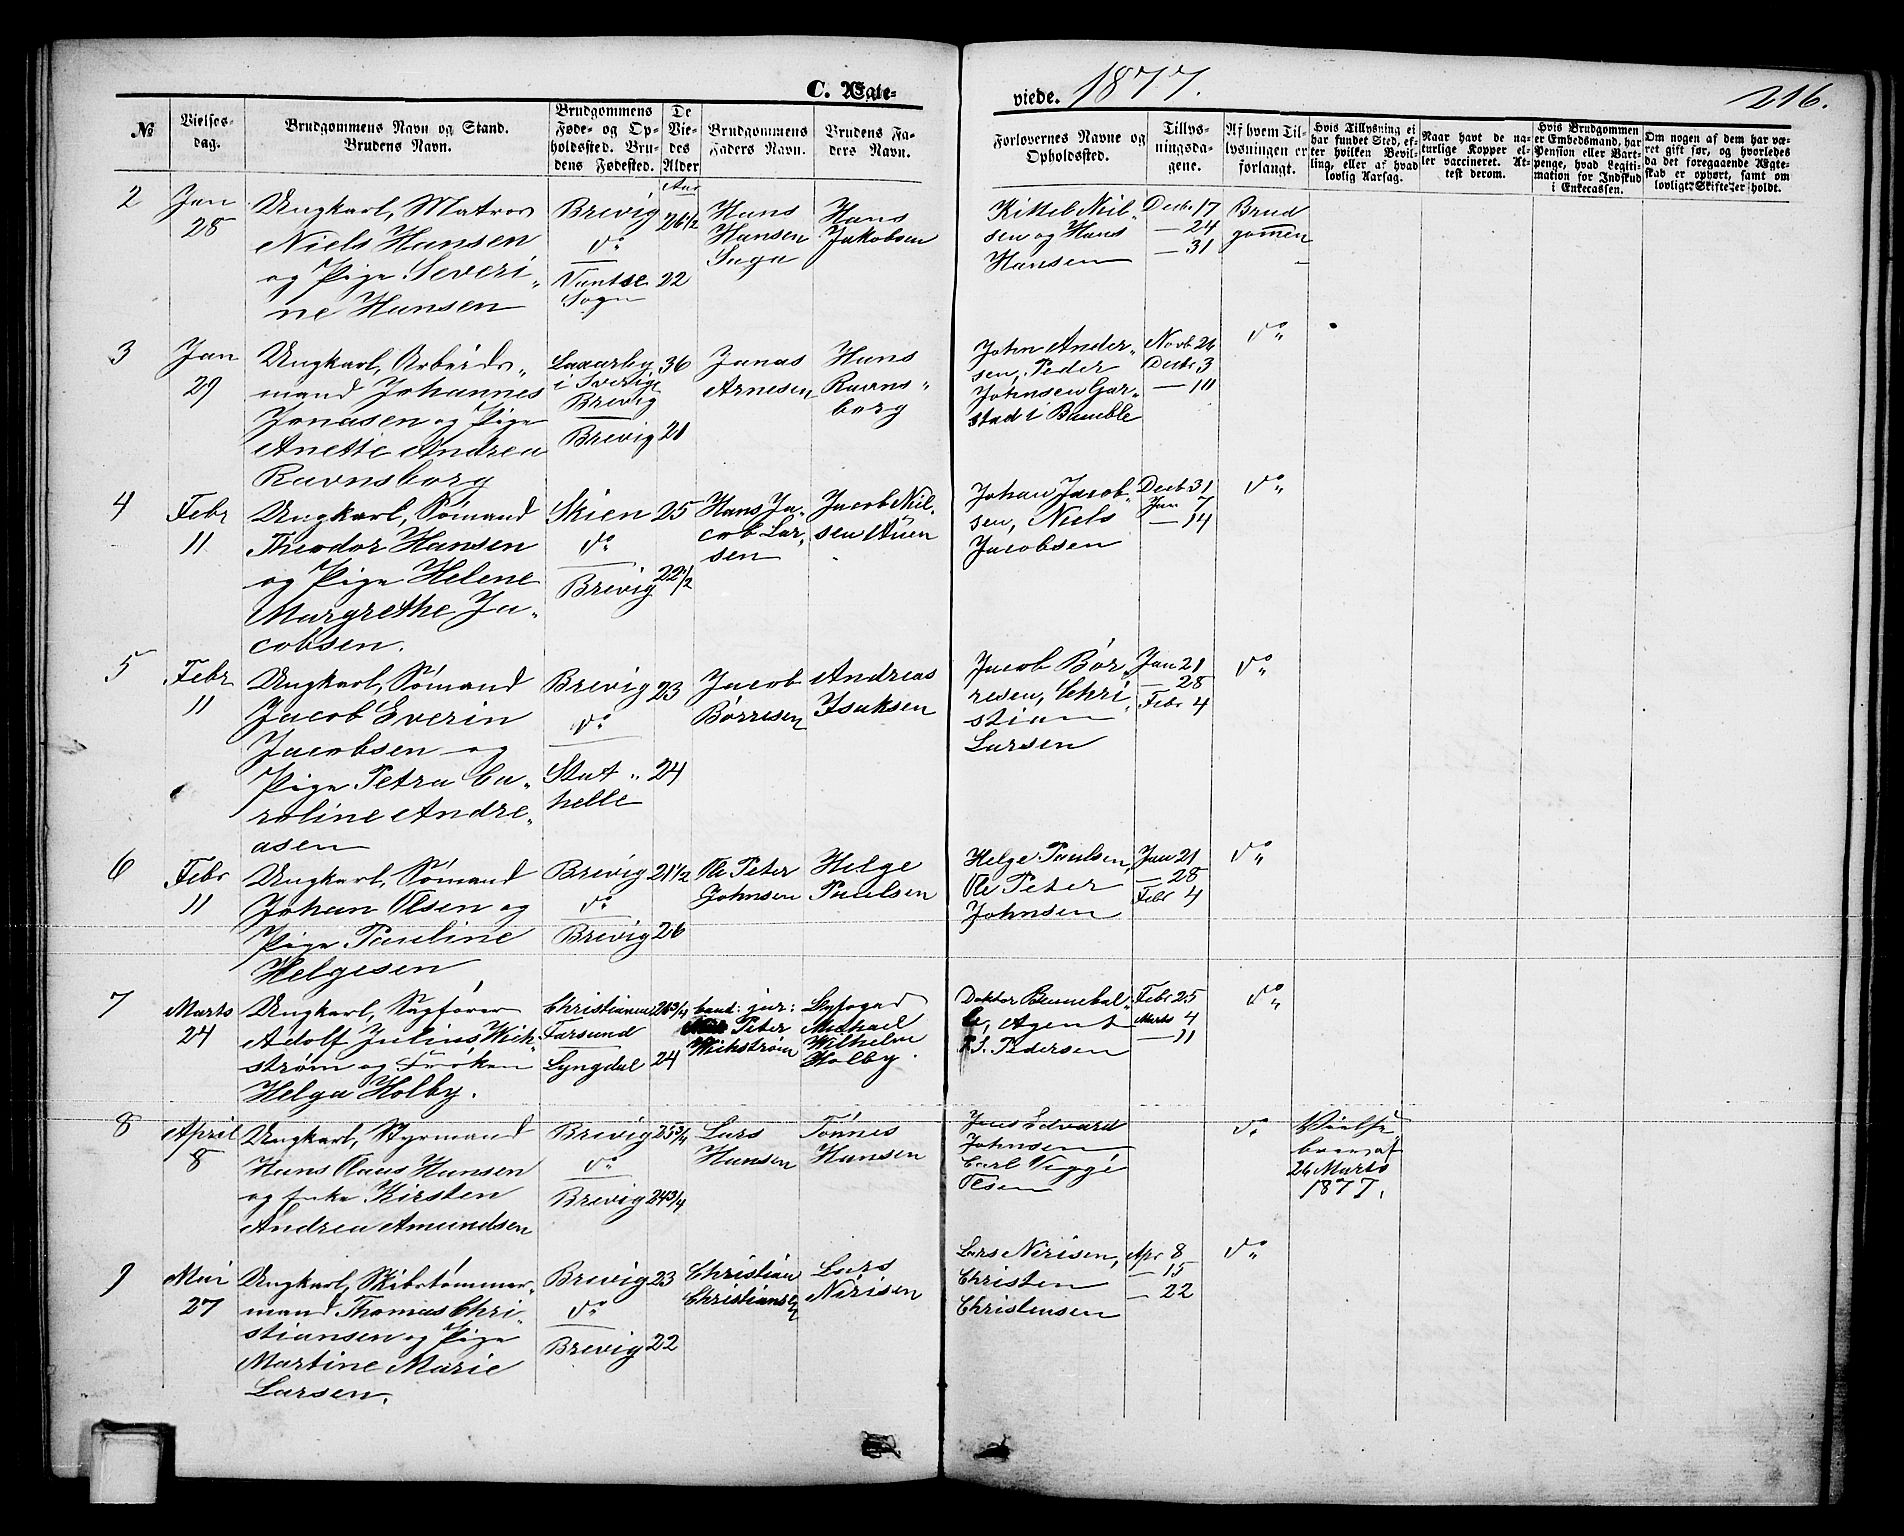 C. Ægte-
viede. 1877. 216.
№
Vielses-
dag.
Brudgommens Navn og Stand.
Brudens Navn.
Brudgommens
Føde- og Op-
holdssted. Bru-
dens Fødested.
De
Vie-
des
Alder
Brudgommens
Faders Navn.
Brudens Fa-
ders Navn.
Forlovernes Navne og
Opholdssted.
Tillys-
ningsda-
gene.
Af hvem Til-
lysningen er
forlangt.
Hvis Tillysning ei
har fundet Sted, ef-
ter hvilken Bevil-
ling, eller af hvad
lovlig Aarsag.
Naar havt de na-
turlige Kopper el-
ler vaccineret. At-
test derom.
Hvis Brudgommen
er Embedsmand, har
Pension eller Vart-
penge, hvad Legiti-
mation for Indskud
i Enkecassen.
Om nogen af dem har væ-
ret gift før, og hvorledes
da det foregaaende Ægte-
skab er ophørt, samt om
lovligt Skifte er holdt.
2
Jan
28
Ungkarl, Matros
Niels Hansen
og Pige Severi-
ne Hansen
Brevig
do
Sogn
Aar
26 1/2
22
Hans
Hansen
Hans
Jakobsen
Kittel Niel-
sen og Hans
Hansen
Decbr 17
— 24
— 31
Brud
gomen
3
Jan
29
Ungkarl, Arbeids-
mand Johannes
Jonasen og Pige
Anette Andrea
Ravnsborg
i Sverige
Brevig
Brevig
36
21
Jonas
Arnesen
Hans
Ravns-
borg
John Ander-
sen, Peder
Johnsen Gar-
stad i Bamble
Novb 26
Decbr 3
— 10
do
4
Febr
11
Ungkarl, Sømand
Theodor Hansen
og Pige Helene
Margrethe Ja-
cobsen.
Skien
do
Brevig
25
22 1/2
Hans Ja-
cob Lar-
sen
Jacob Niel-
sen Auen
Johan Jacob-
sen, Niels
Jacobsen
Decb 31
Jan 7
— 14
do
5
Febr
11
Ungkarl, Sømand
Jacob Everin
Jacobsen og
Pige Petra Ca-
roline Andre-
asen
Brevig
do
Stat-
helle
23
24
Jacob
Børresen
Andreas
Isaksen
Jacob Bør-
resen, Chri-
stian
Larsen
Jan 21
— 28
Febr 4
do
6
Febr
11
Ungkarl, Sømand
Johan Olsen og
Pige Pauline
Helgesen
Brevig
do
Brevig
21 1/2
26
Ole Peter
Johnsen
Helge
Paulsen
Helge Paulsen,
Ole Peter
Johnsen
Jan 21
— 28
Febr 4
do
7
Marts
24
Ungkarl, Sagfører
Adolf Julius Wik-
strøm og Frøken
Helga Holby.
Christiania
Farsund
Lyngdal
24
cand: jur:
Peter
Wichstrøm
Byfoged
Michael
Wilhelm
Holby.
Doktor
Agent
P.S. Pedersen
Febr 25
Marts 4
— 11
do
8
April
8
Ungkarl, Styrmand
Hans Claus Hansen
og Enke Kirsten
Andrea Amundsen
Brevig
do
Brevig
25 3/4
24 3/4
Lars
Hansen
Tønnes
Hansen
Jens Edvard
Johnsen
Carl Viggo
do
26 Marts
1877.
9
Mai
27
Ungkarl, Skibstømmer-
mand Thomas Chri-
stiansen og Pige
Martine Marie
Larsen.
Brevig
do
Brevig
23
22
Christian
Christiansen
Lars
Nirisen
Lars Nirisen,
Christen
Christensen
Apr 8
— 15
— 22
do